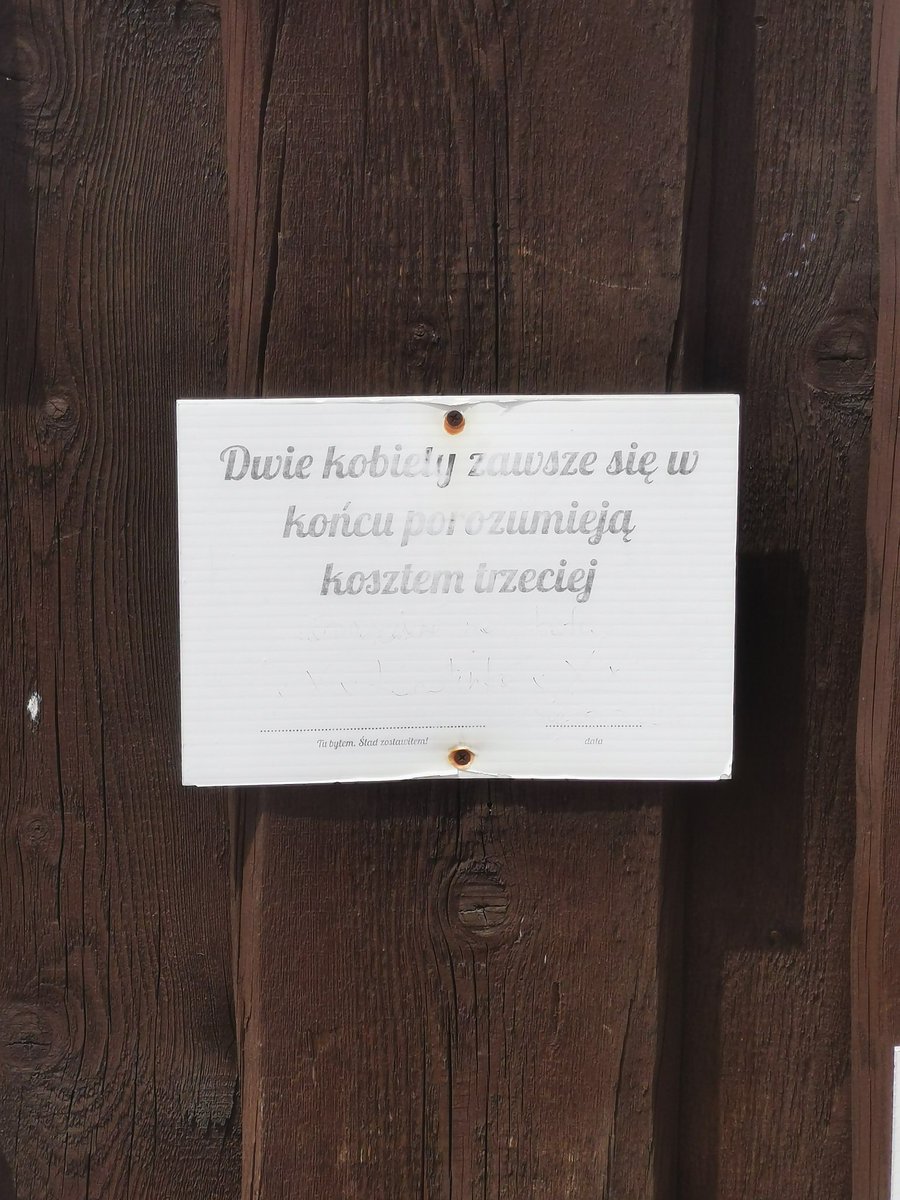 Dwie kobiety zawsze się w
końcu porozumieją
kosztem trzeciej
Tu byłem. Ślad zostawiłem!
data